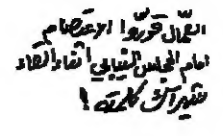 العمال قرروا الاعتصام
امام المجلس النيابي اثناء القاء
شيراك كلمته !